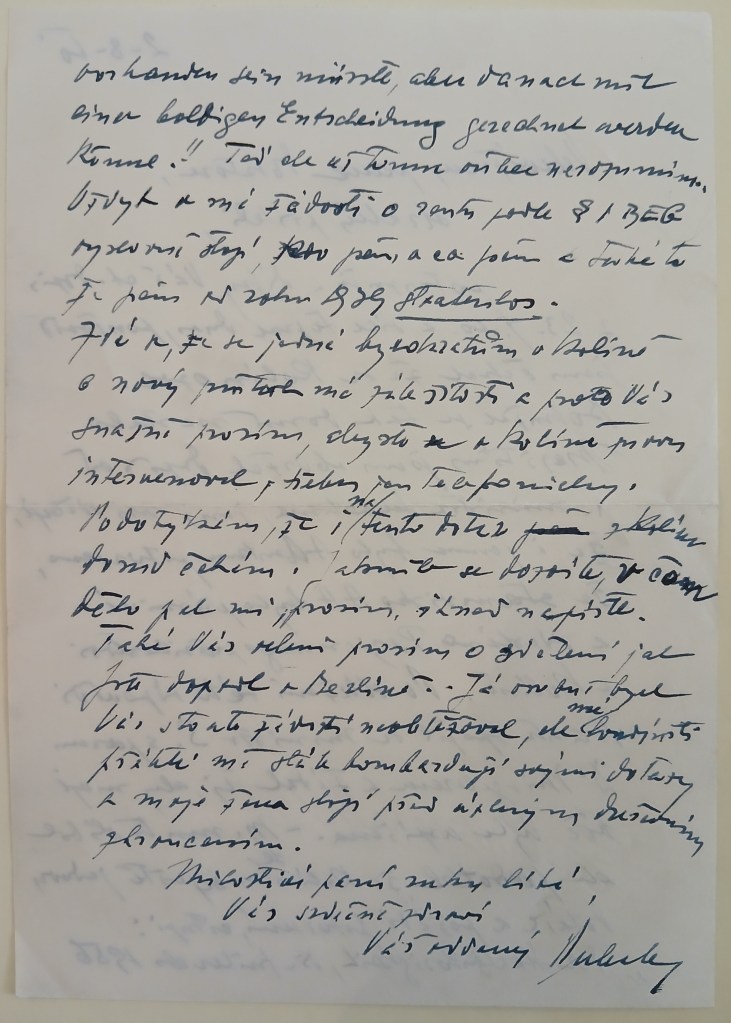 vorhanden sein müsste, aber danach mit
einer baldigen Entscheidung gerechnet werden
könne!! Teď ale už tomu vůbec nerozumím.
Vždyť v mé žádosti o rentu podle § 1 BEG
výslovně stojí, že jsem a také to
že jsem od roku 1939 staatenlos.
Zdá se, že se jedná byrokratům v Kolíně
o nový průtah mé záležitosti a proto Vás
snažně prosím, abyste v Kolíně
intervenoval, třeba jen telefonicky.
Podotýkám, že i na tento dotaz z Kolína
dosud čekám. Jakmile se dozvíte, v čem
vězí pak mi, prosím, ihned napište.
Také Vás velmi prosím o sdělení jak
jste dopadl v Berlíně. - Já osobně bych
Vás s touto žádostí neobtěžoval, ale mé londýnští
přátelé mě stále bombardují svými dotazy
a moje žena stojí před úplným duševním
zhroucením.
Milostivé paní ruku líbá,
Vás srdečně zdraví
Váš oddaný